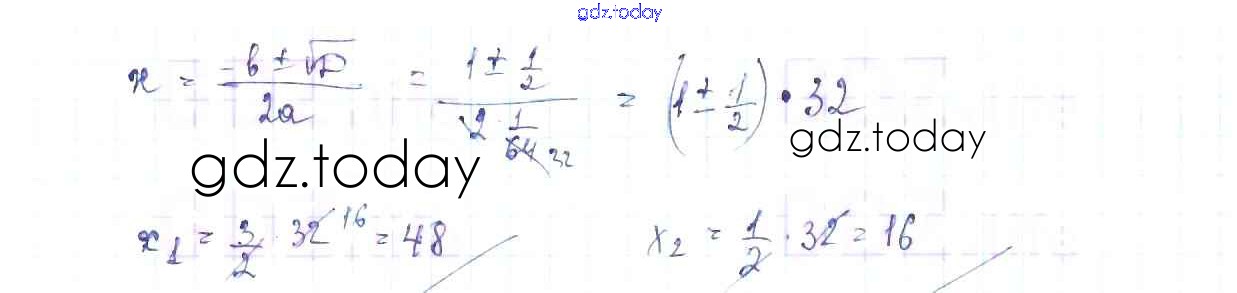 gdz.today
x = (-b ± √D) / 2a = (1 ± 1/2) / (2 · 1/64 32) = (1 ± 1/2) · 32
gdz.today
gdz.today
x₁ = 3/2 · 32 16 = 48
x₂ = 1/2 · 32 = 16